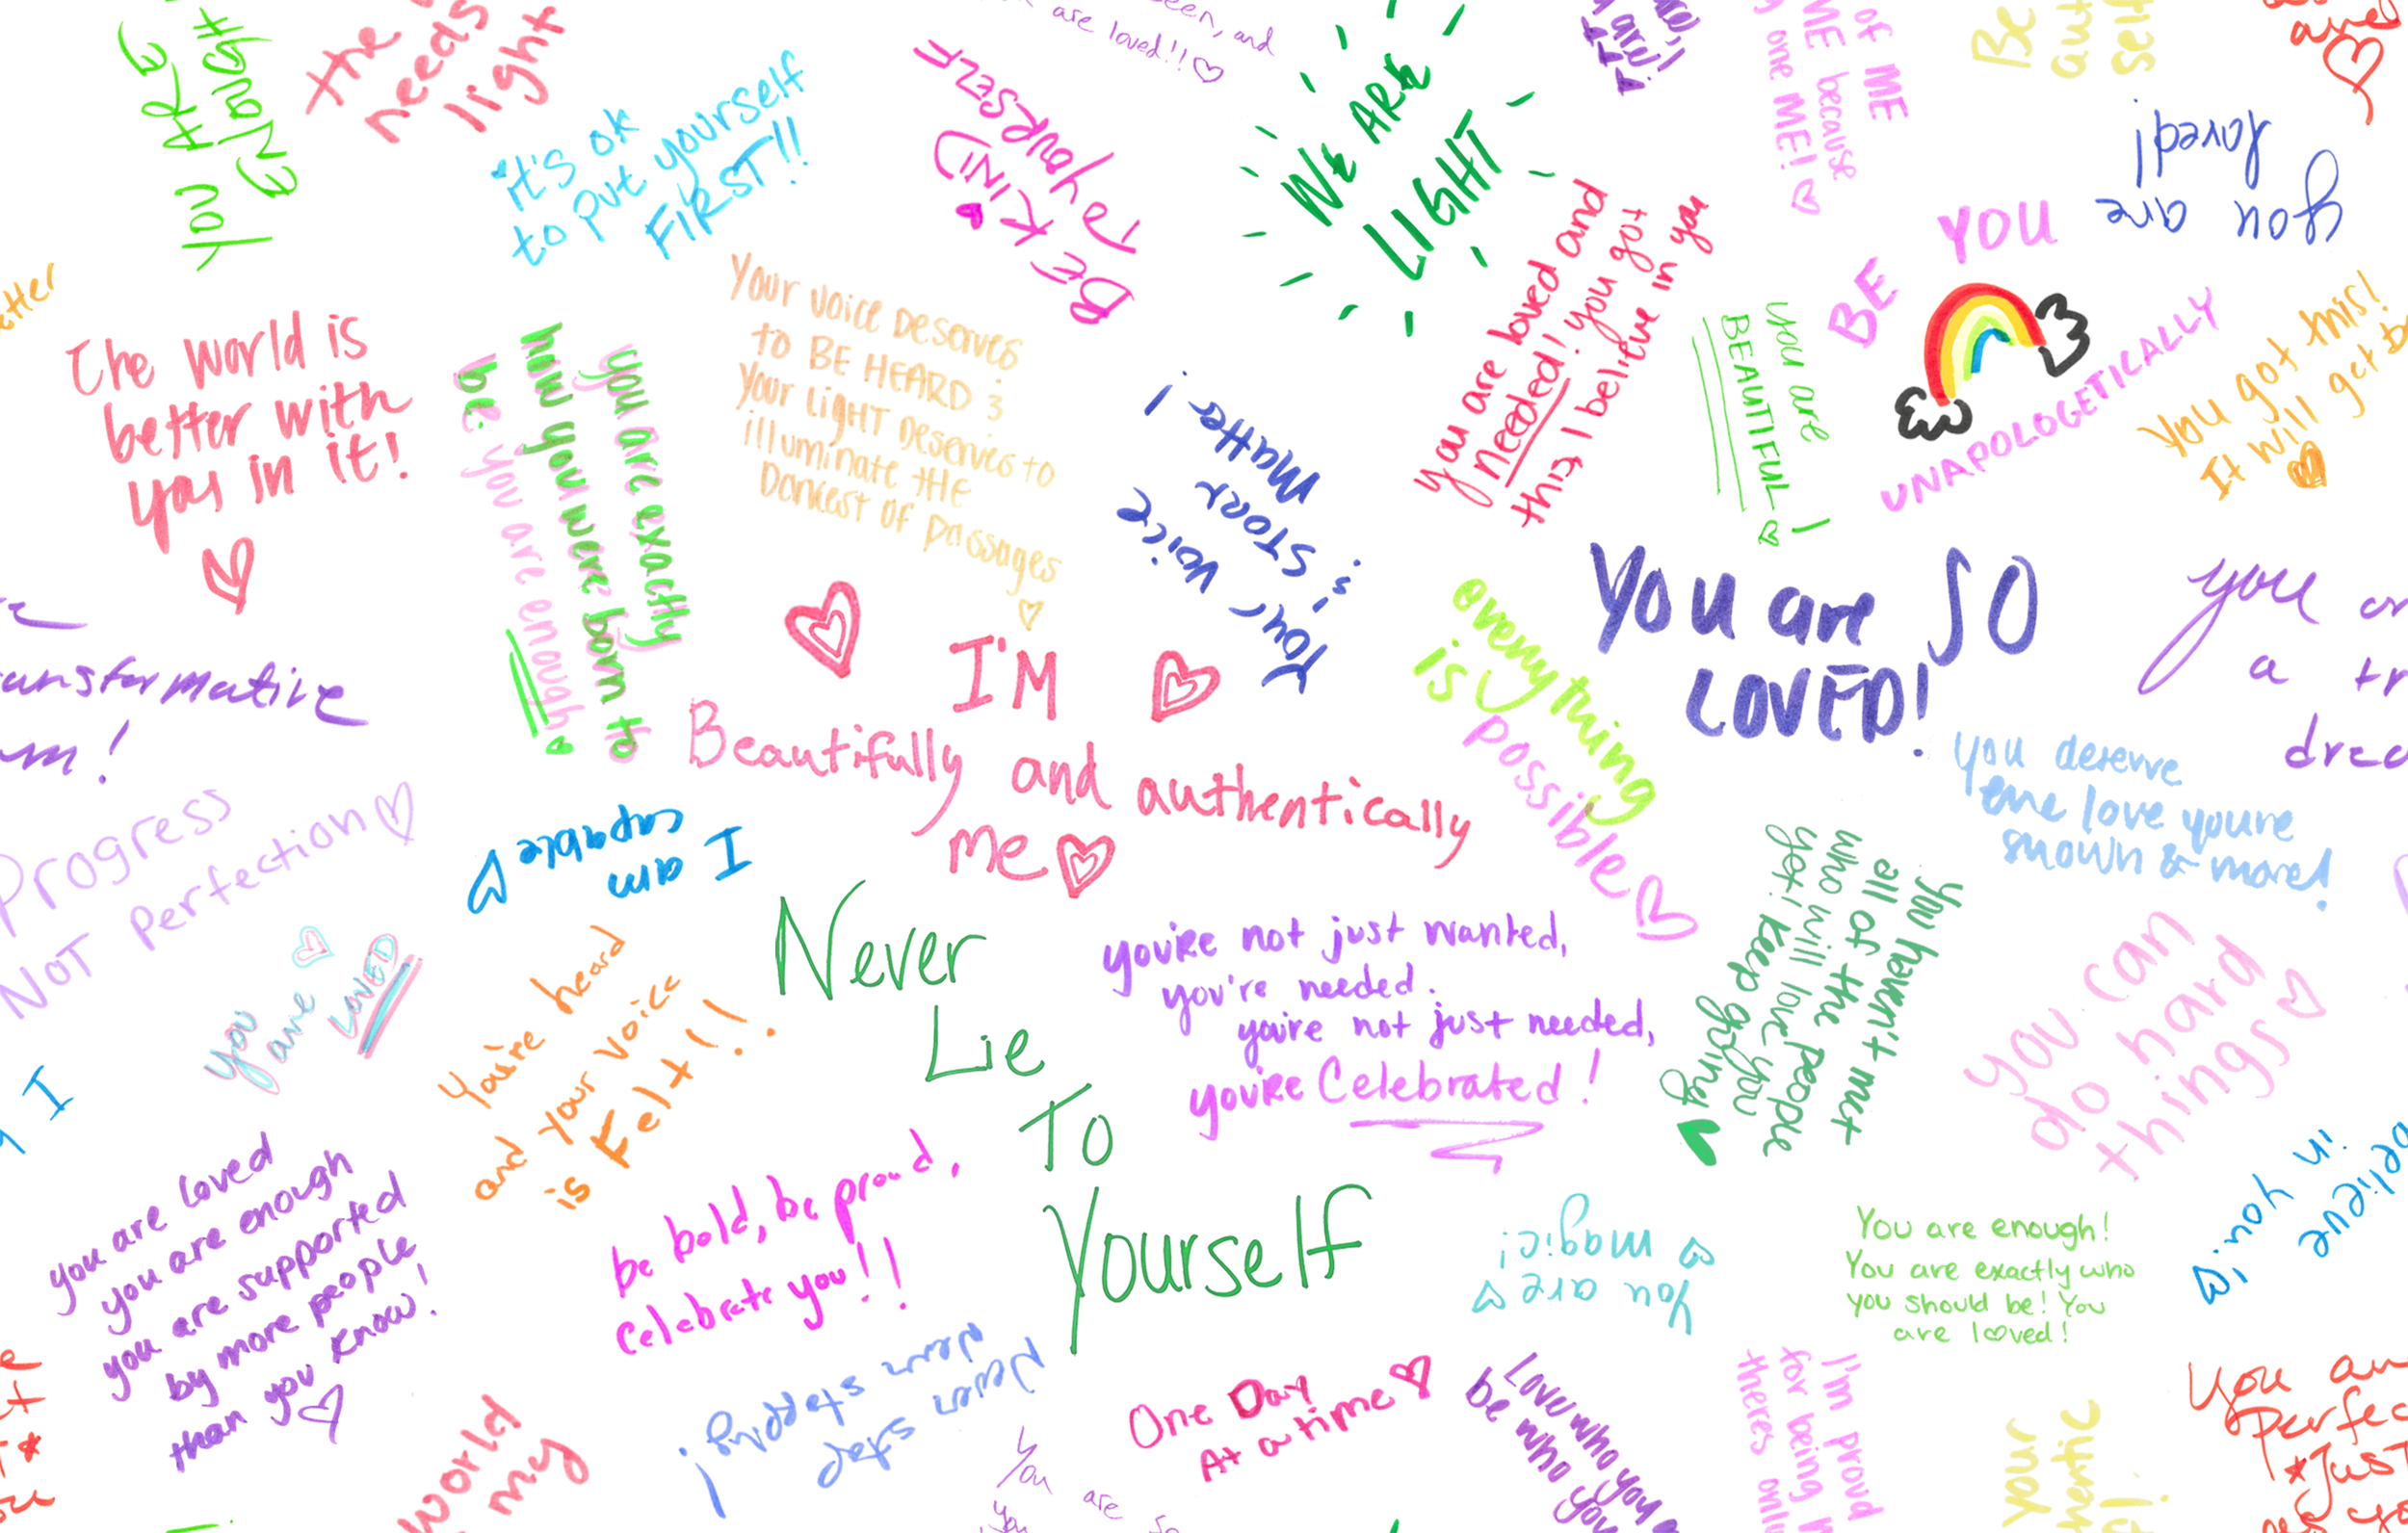 You ARE
enough
the
needs
light
it's ok
to put yourself
FIRST!!
BE KIND
To YOURSELF
een, and
are loved!!
WE ARE
LIGHT
are!!
of ME
ME because
one ME!
Be
self
are
you are
loved!
etter
The world is
better with
you in it!
you are exactly
how you were born to
be. you are enough
Your voice Deserves
to BE HEARD &
Your LIGHT Deserves to
illuminate tHe
Darkest of passages
Your voice
is STRONG
Matter!
you are loved and
needed! you got
this, I believe in you
you are
BEAUTIFUL!
BE YOU
UNAPOLOGETICALLY
You got this!
It will get b
ansformative
m!
I'M
Beautifully and authentically
Me
everything
is possible
You are SO
LOVED!
you ar
a tr
drea
Progress
NOT Perfection
I am
capable
Never
Lie
To
Yourself
you're not just wanted,
you're needed.
you're not just needed,
you're Celebrated!
you deserve
the love youre
shown & more!
you haven't met
all of the people
who will love you
yet! keep going
you can
do hard
things
you are LOVED
You're heard
and your voice
is Felt!!
I
you are loved
you are enough
you are supported
by more people
than you know!
be bold, be proud,
celebrate you!!
You are
magic!
You are enough!
You are exactly who
you should be! You
are loved!
elieve
in you!
world
my
One Day
At a time
You are
Love who you
be who you
I'm proud
for being
theres only
your
You ar
perfec
*Just